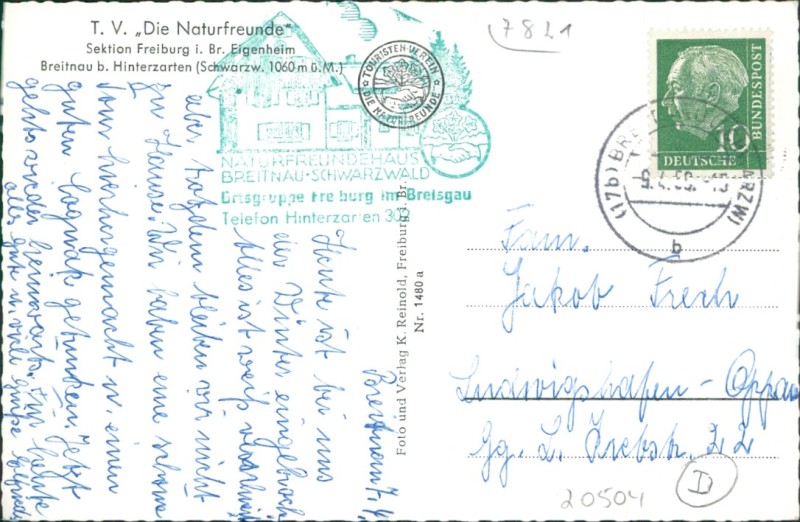 T. V. „Die Naturfreunde"
Sektion Freiburg i. Br. Eigenheim
Breitnau b. Hinterzarten (Schwarzw. 1060 m ü. M.)
TOURISTEN-VEREIN
DIE NATURFREUNDE
NATURFREUNDEHAUS
BREITNAU-SCHWARZWALD
Ortsgruppe Freiburg im Breisgau
Telefon Hinterzarten 302
7821
10
DEUTSCHE
BUNDESPOST
(17b) BREITNAU (SCHWARZW)
b
Breitnau 7.4.
Heute ist bei uns
der Winter eingebrochen
Alles ist weiß
aber trotzdem bleiben wir nicht
zu Hause. Wir haben eine schöne
Tour hintergemacht u. einen
guten Cognak getrunken. Jetzt
gehts wieder heimwärts. Für heute
alles gute u. viele Grüße
Foto und Verlag K. Reinold, Freiburg i. Br.
Nr. 1480 a
Fam.
Jakob Frech
Ludwigshafen-Oppau
Gg. L. Krebstr. 22
20504
D